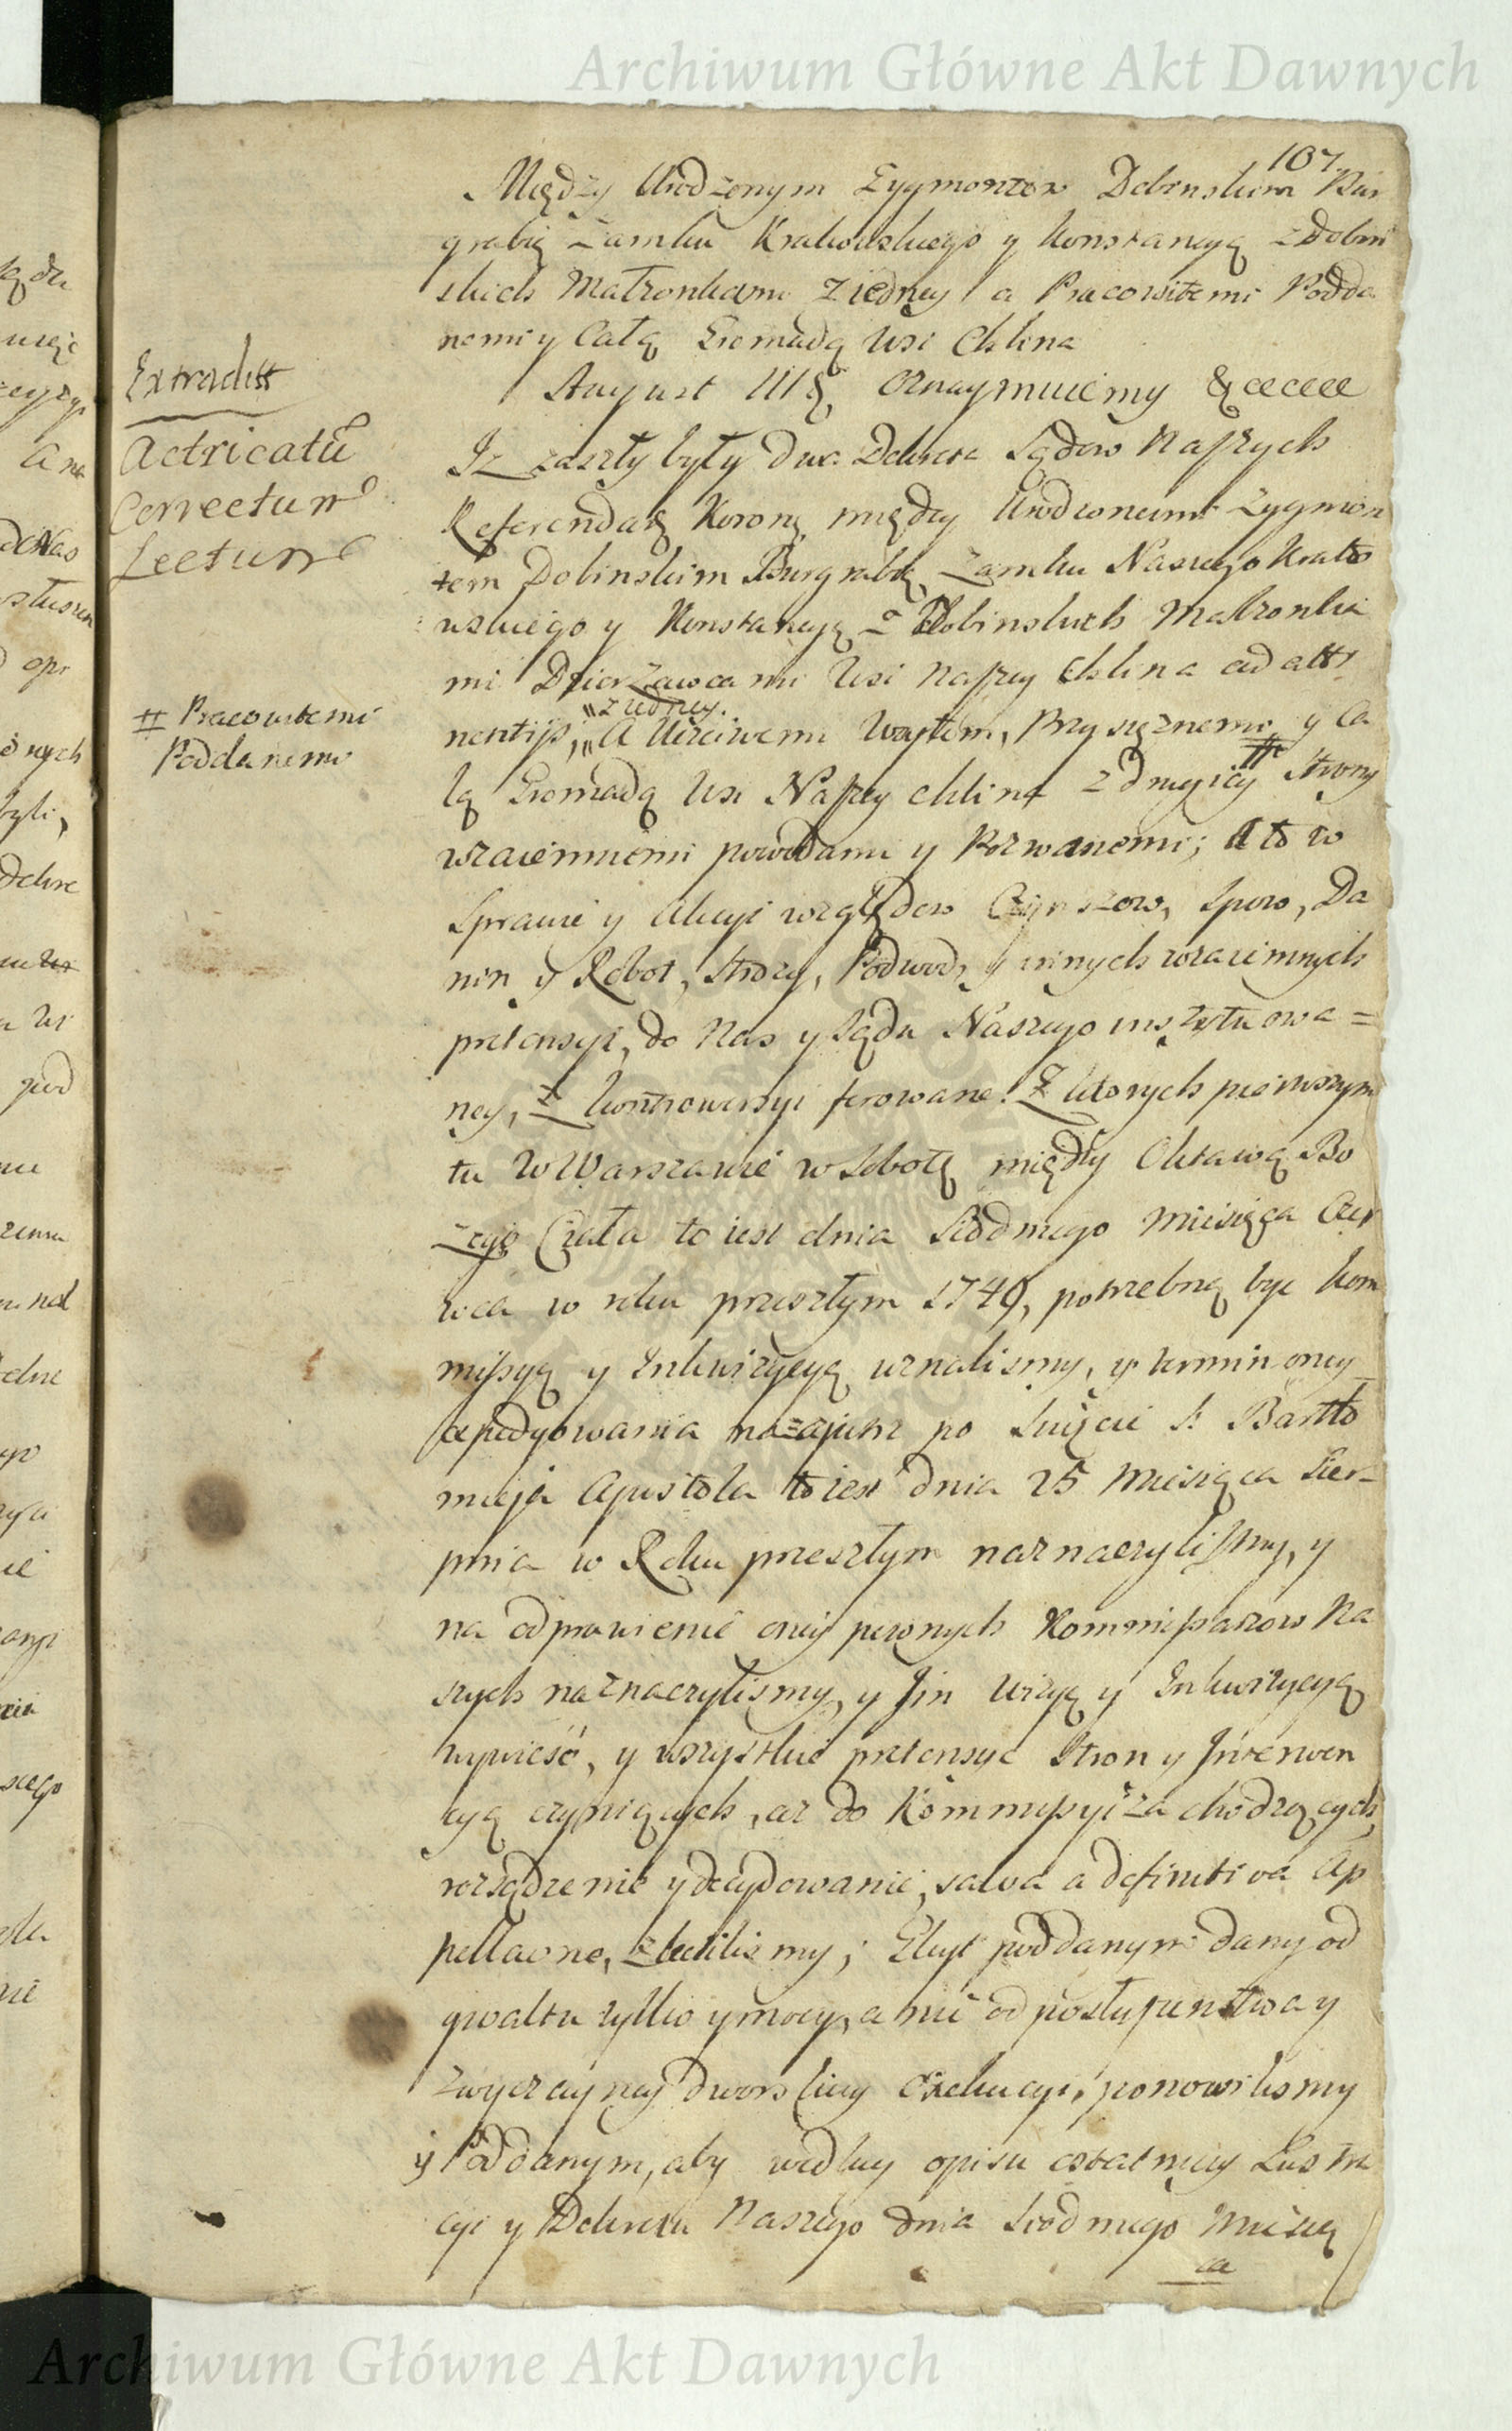 Archiwum Główne Akt Dawnych
107
Między Urodzonym Zygmontem Dobinskim Bur
grabią Zamku Krakowskiego y Konstancyą z Dobin
skich Małzonkami z iedney a Pracowitemi Podda
nemi y Całą Gromadą Wsi Chlina
August III & Oznaymuiemy &
Extradit
Actricatū
Correctum
Lectum
Iz zaszły były dwa Dekreta Sądow Naszych
Referendar: Koron: między Urodzonemi Zygmon
tem Dobinskim Burgrabią Zamku Naszego Krako
wskiego y Konstancyą z Dobinskich Małzonka
mi Dzierzawcami Wsi Naszey Chlina cū att
z iedney.
nentijs, A Uczciwemi Woytem, Przysięznemi y Ca
łą Gromadą Wsi Naszey Chlina z drugicy # Strony
# Pracowitemi
Poddanemi
wzaiemnemi powodami y Pozwanemi; A to w
Sprawie y Akcyi względem Czynszow, Spow, Da
nin y Robot, Strozy, Podwod, y innych wzaiemnych
pretensyi, do Nas y Sądu Naszego instytuowa=
ney, z kontrowersyi ferowane. Z ktorych pierwszym
tu w Warszawie w Sobotę między Oktawą Bo
zego Ciała to iest dnia Siodmego Miesiąca Czer
wca w roku przeszłym 1749, potrzebną byc Kom
missyą y Inkwizycyą uznalismy, y termin oney
expedyowania nazajutrz po Swięcie S. Bartło
mieja Apostoła to iest dnia 25 Miesiąca Sier-
pnia w Roku przeszłym naznaczylismy, y
na odprawienie oney pewnych Kommissarzow Na
szych naznaczylismy, y Jm wizyą y Inkwizycyą
wywieść, y wszystkie pretensye Stron y Interwen
cyą czyniących, az do Kommissyi zachodzących
rozsądzenie y decydowanie, salva a definitiva Ap
pellaone, zleciliśmy; Gleyt poddanym dany od
gwałtu tylko y mocy, a nie od posłuszenstwa y
zwyczayney dworskiey exekucyi, ponowilismy
y Poddanym, aby według opisu ostatniey Lustra
cyi y Dekretu Naszego dnia Siodmego Miesią
ca
Archiwum Główne Akt Dawnych